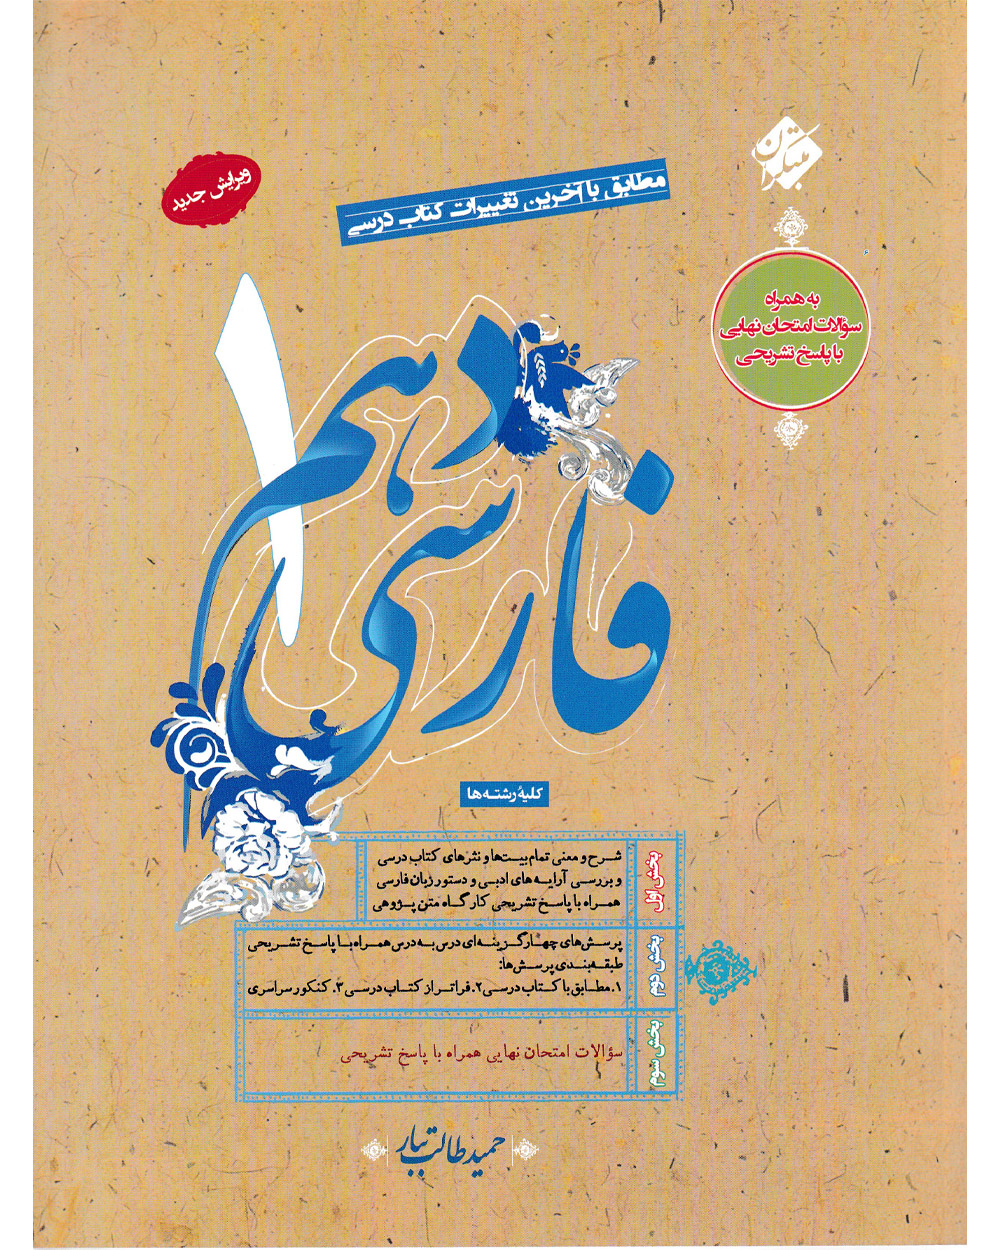 مبتکران
ویرایش جدید
مطابق با آخرین تغییرات کتاب درسی
به همراه
سؤالات امتحان نهایی
با پاسخ تشریحی
فارسی
دهم
۱
کلیهٔ رشته‌ها
بخش اوّل
شرح و معنی تمام بیت‌ها و نثرهای کتاب درسی
و بررسی آرایه‌های ادبی و دستور زبان فارسی
همراه با پاسخ تشریحی کارگاه متن پژوهی
بخش دوم
پرسش‌های چهارگزینه‌ای درس به درس همراه با پاسخ تشریحی
طبقه‌بندی پرسش‌ها:
۱. مطابق با کتاب درسی ۲. فراتر از کتاب درسی ۳. کنکور سراسری
بخش سوم
سؤالات امتحان نهایی همراه با پاسخ تشریحی
حمید طالب تبار